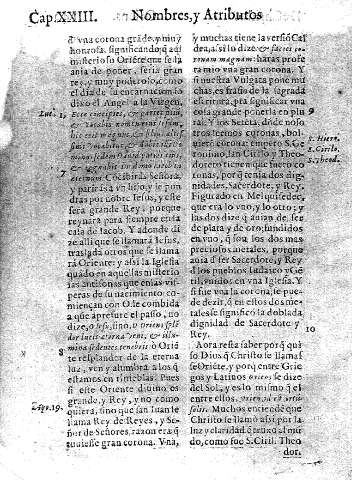 Cap. XXIII. Nombres, y Atributos
d'vna corona grāde, y muy
honrosa. significando, q̄ aql̄
misterio su Oriēte que se la
auia de poner, seria gran
rey, y muy poderoso, como
el dia de su encarnaciō
dixo el Angel a la Virgen.
Luc. 1. Ecce concipies, & paries filiū,
& vocabis nomen eius Iesum,
hic erit magnus, & filius altis
simi vocabitur, & dabit illi do
minus sedem
7 eternum. Cōcibirás Señora,
y pariras a vn hijo, y le pon
dras por nōbre Iesus, y est
sera grande Rey, porque
reynara para siempre en la
casa de Iacob. Y adonde di
ze alli que se llamará Iesus,
traslada otros que se llama
rá Oriente: y assi la Iglesia
quādo en aquellas misterio
sas antifonas que en las vis
peras de su nacimiento co-
miençan con O le combida
a que apresure el passo, no
dize, o Iesu, sino, o oriens splē
dor lucis eternæ veni, & illu-
8 mina sedentes in tenebris: o Oriē
te resplandor de la eterna
luz, ven y alumbra a los q̄
estamos en tinieblas. Pues
si este Oriente diuino es
grande, y Rey, y no como
Apo. 19. quiera, sino que san Iuan le
llama Rey de Reyes, y Se-
ñor de Señores, razon era q̄
tuuiesse gran corona. Vna,
y muchas tiene la versiō Cal
dea, assi lo dize: & facies co-
ronam magnam: haras profe
ta mio vna gran corona. Y
si nuestra Vulgata pone mu
chas, es frasis de la sagrada
escritura, pra significar vna
9 cosa grande ponerla en plu
ral. Y los Setēta, dōde noso-
tros leemos coronas, bol-
uierō corona: empero S. Ge
S. Hiero. ronimo, san Cirilo y Theo-
S. Cirilo. doreto tiene que fuerō co-
S. Theod. ronas, porq̄ tenia dos dig-
nidades, Sacerdote, y Rey.
Figurado en Melquisedec,
que era lo vno, y lo otro; y
las dos dize q̄ auian de ser
de plata y de oro, fundidos
en vno, q̄ son los dos mes
preciosos metales, porque
auia de ser Sacerdote, y Rey
d los pueblos Iudaico y Gē
til, vnidos en vna Iglesia. Y
si fue vna la corona, te pue-
de dezir, q̄ en estos dos me-
tales se significò la doblada
10 dignidad de Sacerdote y
Rey.
Aora resta saber porq̄ qui
so Dios q̄ Christo se llamas
se Oriēte, y porq̄ entre Grie
gos y Latinos oriens se dize
del Sol, y esso mismo q̄ el
entre ellos
Muchos entiēdē que
Christo se llamò assi por la
luz y claridad q̄ traxo al mū
do, como fue S. Ciril. Theo
dor.